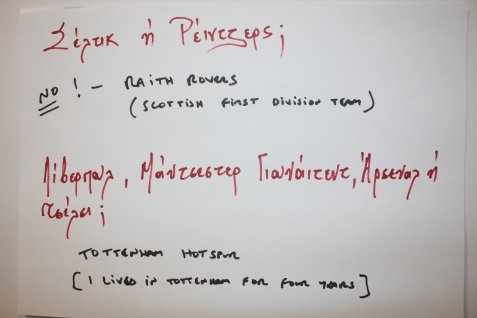 Σέλτικ ή Ρέιντζερς;
NO! - RAITH ROVERS
(SCOTTISH FIRST DIVISION TEAM)
Λίβερπουλ, Μάντσεστερ Γιουνάιτεντ, Άρσεναλ ή
Τσέλσι;
TOTTENHAM HOTSPUR
[I LIVED IN TOTTENHAM FOR FOUR YEARS]